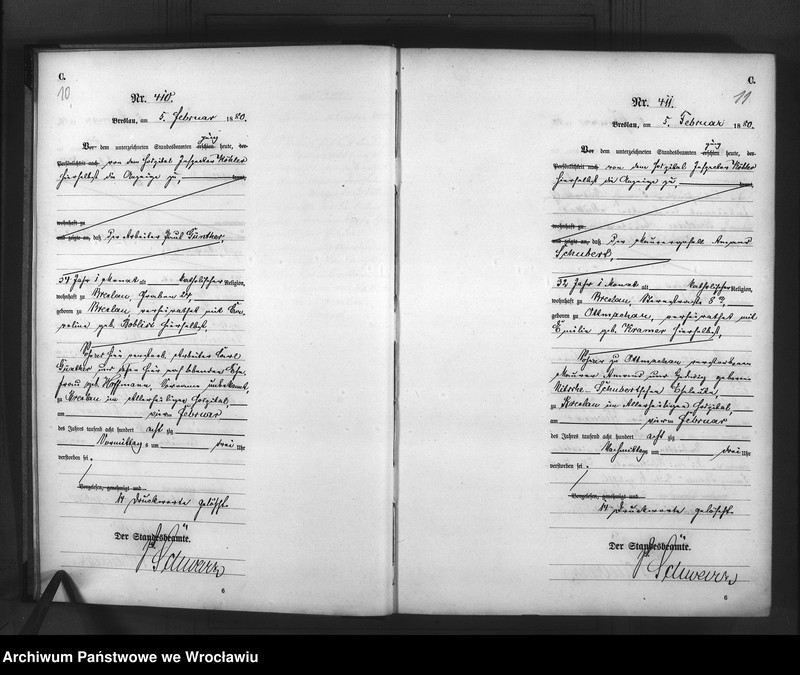 C.
10
Nr. 410.
Breslau, am 5. Februar 1880.
ging
Vor dem unterzeichneten Standesbeamten erschien heute, der
Persönlichkeit nach von dem Hospital Inspector Köhler
hierselbst die Anzeige zu,
wohnhaft zu
und zeigte an, daß der Arbeiter Paul Günther,
54 Jahr 1 Monat alt katholischer Religion,
wohnhaft zu Breslau, Graben 24,
geboren zu Breslau, verheirathet mit
geb. hierselbst,
Sohn des hier verstorb. Arbeiter Carl
Günther und dessen hier noch lebenden Ehe-
frau geb. Hoffmann, Vorname unbekannt,
zu Breslau im Allerheiligen Hospital,
am vierten Februar
des Jahres tausend acht hundert achtzig
Vormittags um drei Uhr
verstorben sei.
Vorgelesen, genehmigt und
14 Druckworte gelöscht.
Der Standesbeamte.
6
C.
11
Nr. 411.
Breslau, am 5. Februar 1880.
ging
Vor dem unterzeichneten Standesbeamten erschien heute, der
Persönlichkeit nach von dem Hospital Inspector Köhler
hierselbst die Anzeige zu,
wohnhaft zu
und zeigte an, daß der Maurergesell Amand
Schubert,
32 Jahr 1 Monat alt katholischer Religion,
wohnhaft zu Breslau,
geboren zu Ottmachau, verheirathet mit
Emilie geb. Kramer hierselbst,
Sohn der zu Ottmachau verstorbenen
Maurer Amand und Hedwig geborene
Nitsche Schubertschen Eheleute,
zu Breslau im Allerheiligen Hospital,
am vierten Februar
des Jahres tausend acht hundert achtzig
Nachmittags um drei Uhr
verstorben sei.
Vorgelesen, genehmigt und
14 Druckworte gelöscht.
Der Standesbeamte.
6
Archiwum Państwowe we Wrocławiu